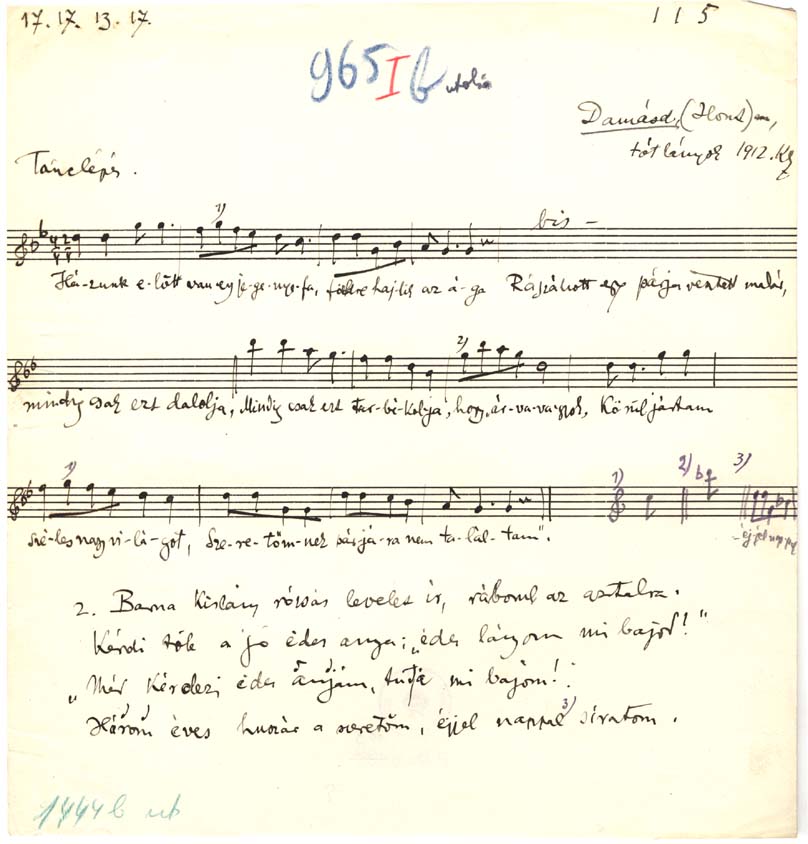 17. 17. 13. 17.
115
965 I b utolia
Damásd, (Hont) m,
tót lányok 1912. KZ
Tánclépés.
bis –
Há-zunk e-lőtt van egy je-ge-nye-fa, földre hajlik az á-ga Rászállott egy párja vesztett madár,
mindig csak ezt dalolja, Mindig csak ezt tar-bé-kol-ja, hogy ár-va vagyok, Körüljártam
1) 2) 3)
szé-les nagy vi-lá-got, Sze-re-tőm-nek párjá-ra nem ta-lál-tam".
2. Barna kislány rózsás levelet ír, ráborul az asztalra.
Kérdi tőle a jó édes anya; „édes lányom mi bajod!"
„Mér kérdezi édes anyám, tudja mi bajom!
Három éves huszár a szeretőm, éjjel nappal 3) siratom.
1444 b